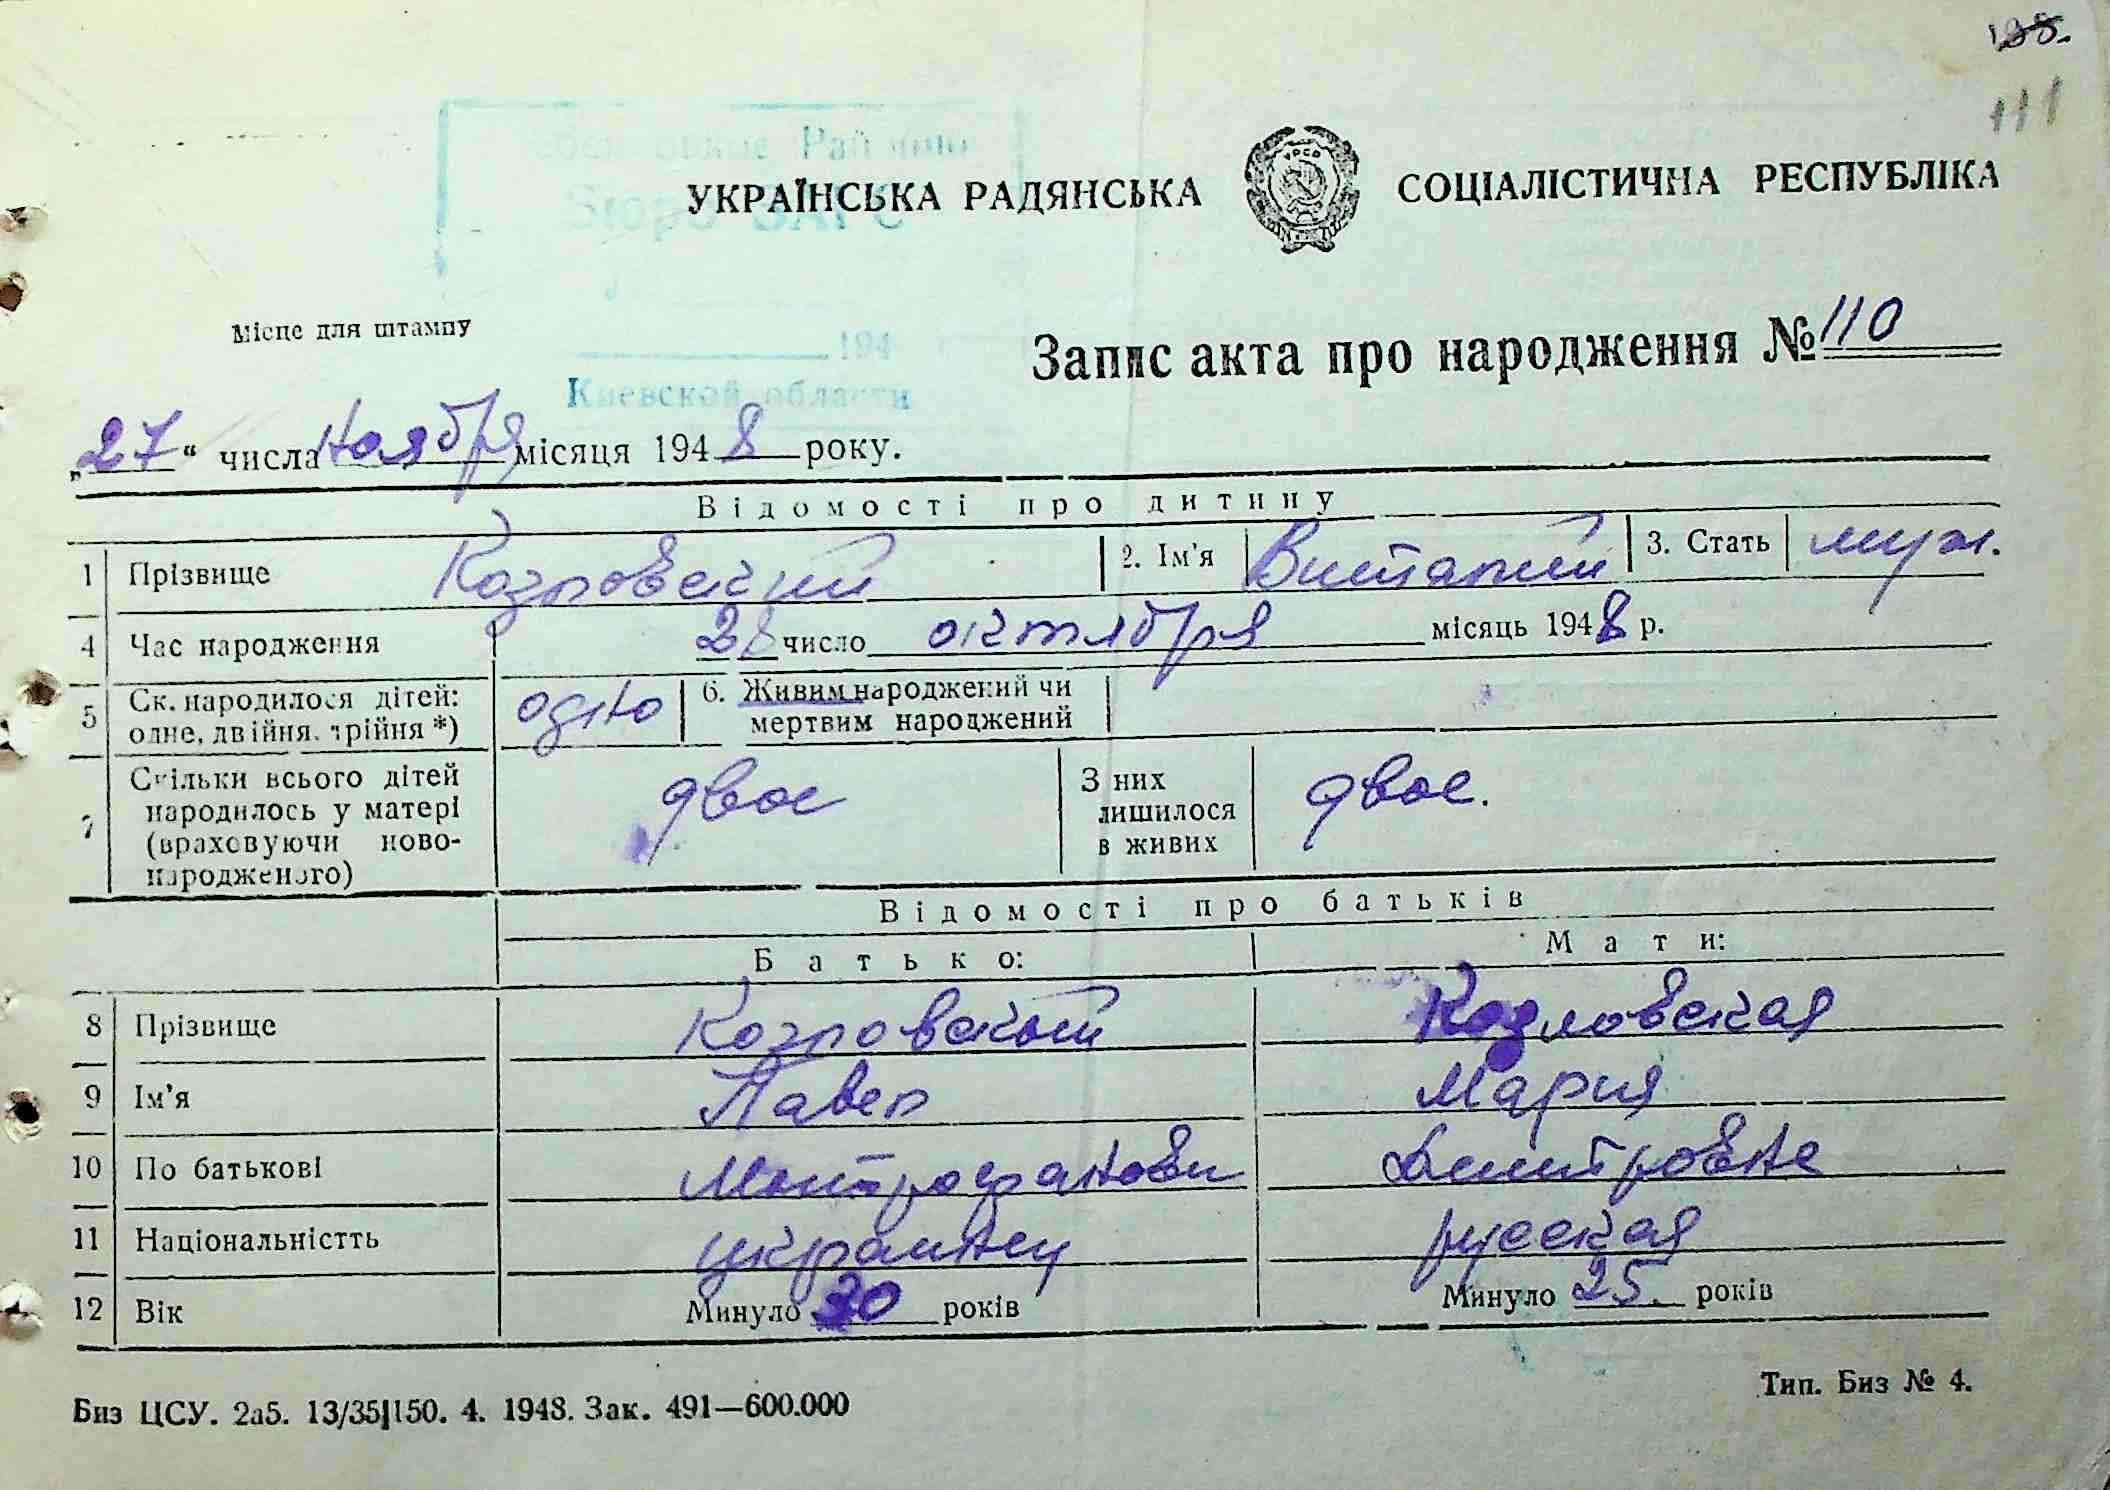 198.
111
Рай
Бюро ЗАГС
УКРАЇНСЬКА РАДЯНСЬКА СОЦІАЛІСТИЧНА РЕСПУБЛІКА
Місце для штампу
194
Киевской области
Запис акта про народження № 110
„27“ числа ноября місяця 1948 року.
Відомості про дитину
1 Прізвище Козловский 2. Ім'я Виталий 3. Стать муж.
4 Час народження 28 число октября місяць 1948 р.
5 Ск. народилося дітей: одно 6. Живим народжений чи
одне, двійня, трійня *) мертвим народжений
7 Скільки всього дітей двое З них двое.
народилось у матері лишилося
(враховуючи ново- в живих
народженого)
Відомості про батьків
Батько: Мати:
8 Прізвище Козловский Козловская
9 Ім'я Павел Мария
10 По батькові Митрофанови Дмитровне
11 Національністть украинец русская
12 Вік Минуло 30 років Минуло 25. років
Биз ЦСУ. 2а5. 13/35|150. 4. 1948. Зак. 491—600.000
Тип. Биз № 4.